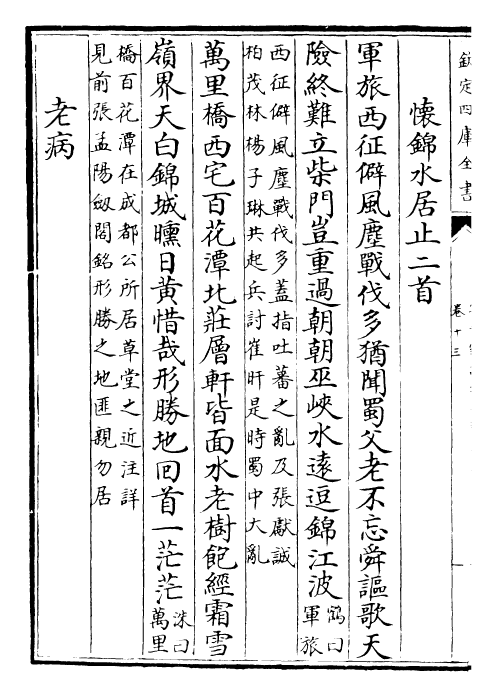 欽定四庫全書
卷十三
懷錦水居止二首
軍旅西征僻風塵戰伐多猶聞蜀父老不忘舜謳歌天
險終難立柴門豈重過朝朝巫峽水遠逗錦江波
鶴曰
軍旅
西征僻風塵戰伐多蓋指吐蕃之亂及張獻誠
柏茂林楊子琳共起兵討崔旰是時蜀中大亂
萬里橋西宅百花潭北莊層軒皆面水老樹飽經霜雪
嶺界天白錦城曛日黃惜哉形勝地回首一茫茫
洙曰
萬里
橋百花潭在成都公所居草堂之近注詳
見前張孟陽劔閣銘形勝之地匪親勿居
老病